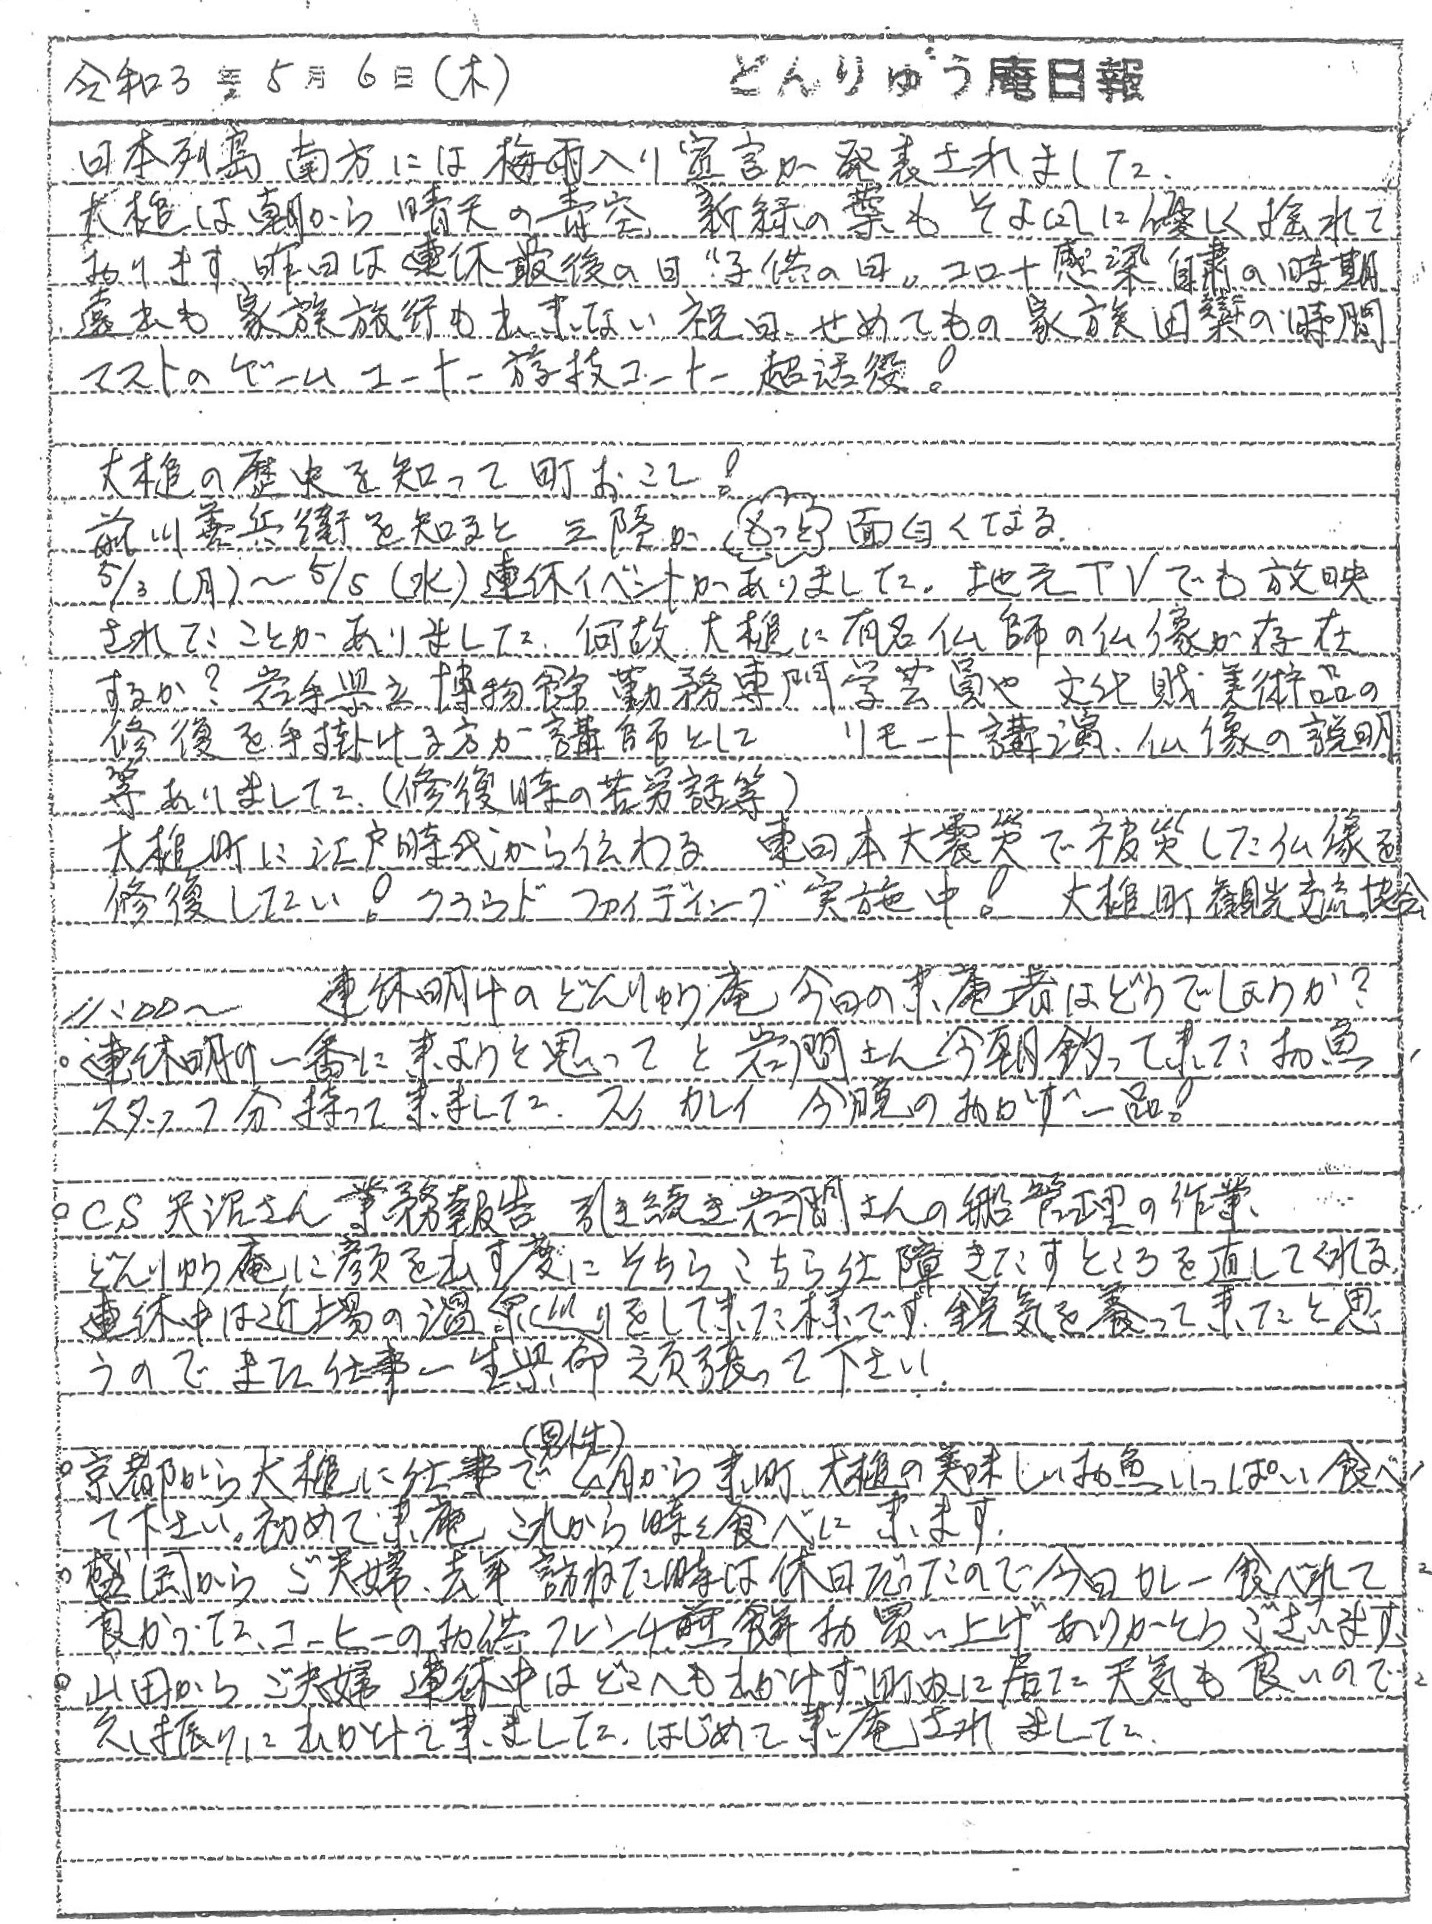 令和3年5月6日(木) どんりゅう庵日報
日本列島南方には梅雨入り宣言が発表されました。
大槌は朝から晴天の青空、新緑の葉もそよ風に優しく揺れて
おります。昨日は連休最後の日"子供の日"。コロナ感染自粛の時期
遠出も家族旅行も出来ない祝日、せめてもの家族団欒の時間
マストのゲームコーナー遊技コーナー超活役!
大槌の歴史を知って町おこし!
前川善兵衛を知ると三陸がもっと面白くなる。
5/3(月)〜5/5(水)連休イベントがありました。地元TVでも放映
されたことがありました。何故、大槌に有名仏師の仏像が存在
するか?岩手県立博物館勤務専門学芸員や文化財美術品の
修復を手掛ける方が講師として リモート講演、仏像の説明
等ありました。(修復時の苦労話等)
大槌町に江戸時代から伝わる 東日本大震災で被災した仏像を
修復したい!クラウドファイディング実施中! 大槌町観光交流協会
11:00〜 連休明けのどんりゅう庵、今日の来庵者はどうでしょうか?
○連休明け一番に来ようと思ってと岩間さん今朝釣って来たお魚
スタッフ分持って来ました。 カレイ 今晩のおかず一品!
○CS矢沢さん業務報告 引き続き岩間さんの船管理の作業、
どんりゅう庵に顔を出す度にそちらこちら仕障きたすところを直してくれる。
連休中は近場の温泉巡りをして来た様です。鋭気を養って来たと思
うのでまた仕事一生懸命頑張って下さい。
(男性)
○京都から大槌に仕事で4月から来町 大槌の美味しいお魚いっぱい食べ
て下さい。初めて来庵、これから時々食べに来ます。
○盛岡からご夫婦、去年訪ねた時は休日だったので今日カレー食べれて
良かった。コーヒーのお供フレンチ煎餅お買い上げありがとうございます。
○山田からご夫婦 連休中はどこへも出かけず町内に居た 天気も良いので
久し振りに出かけて来ました。はじめて来庵されました。